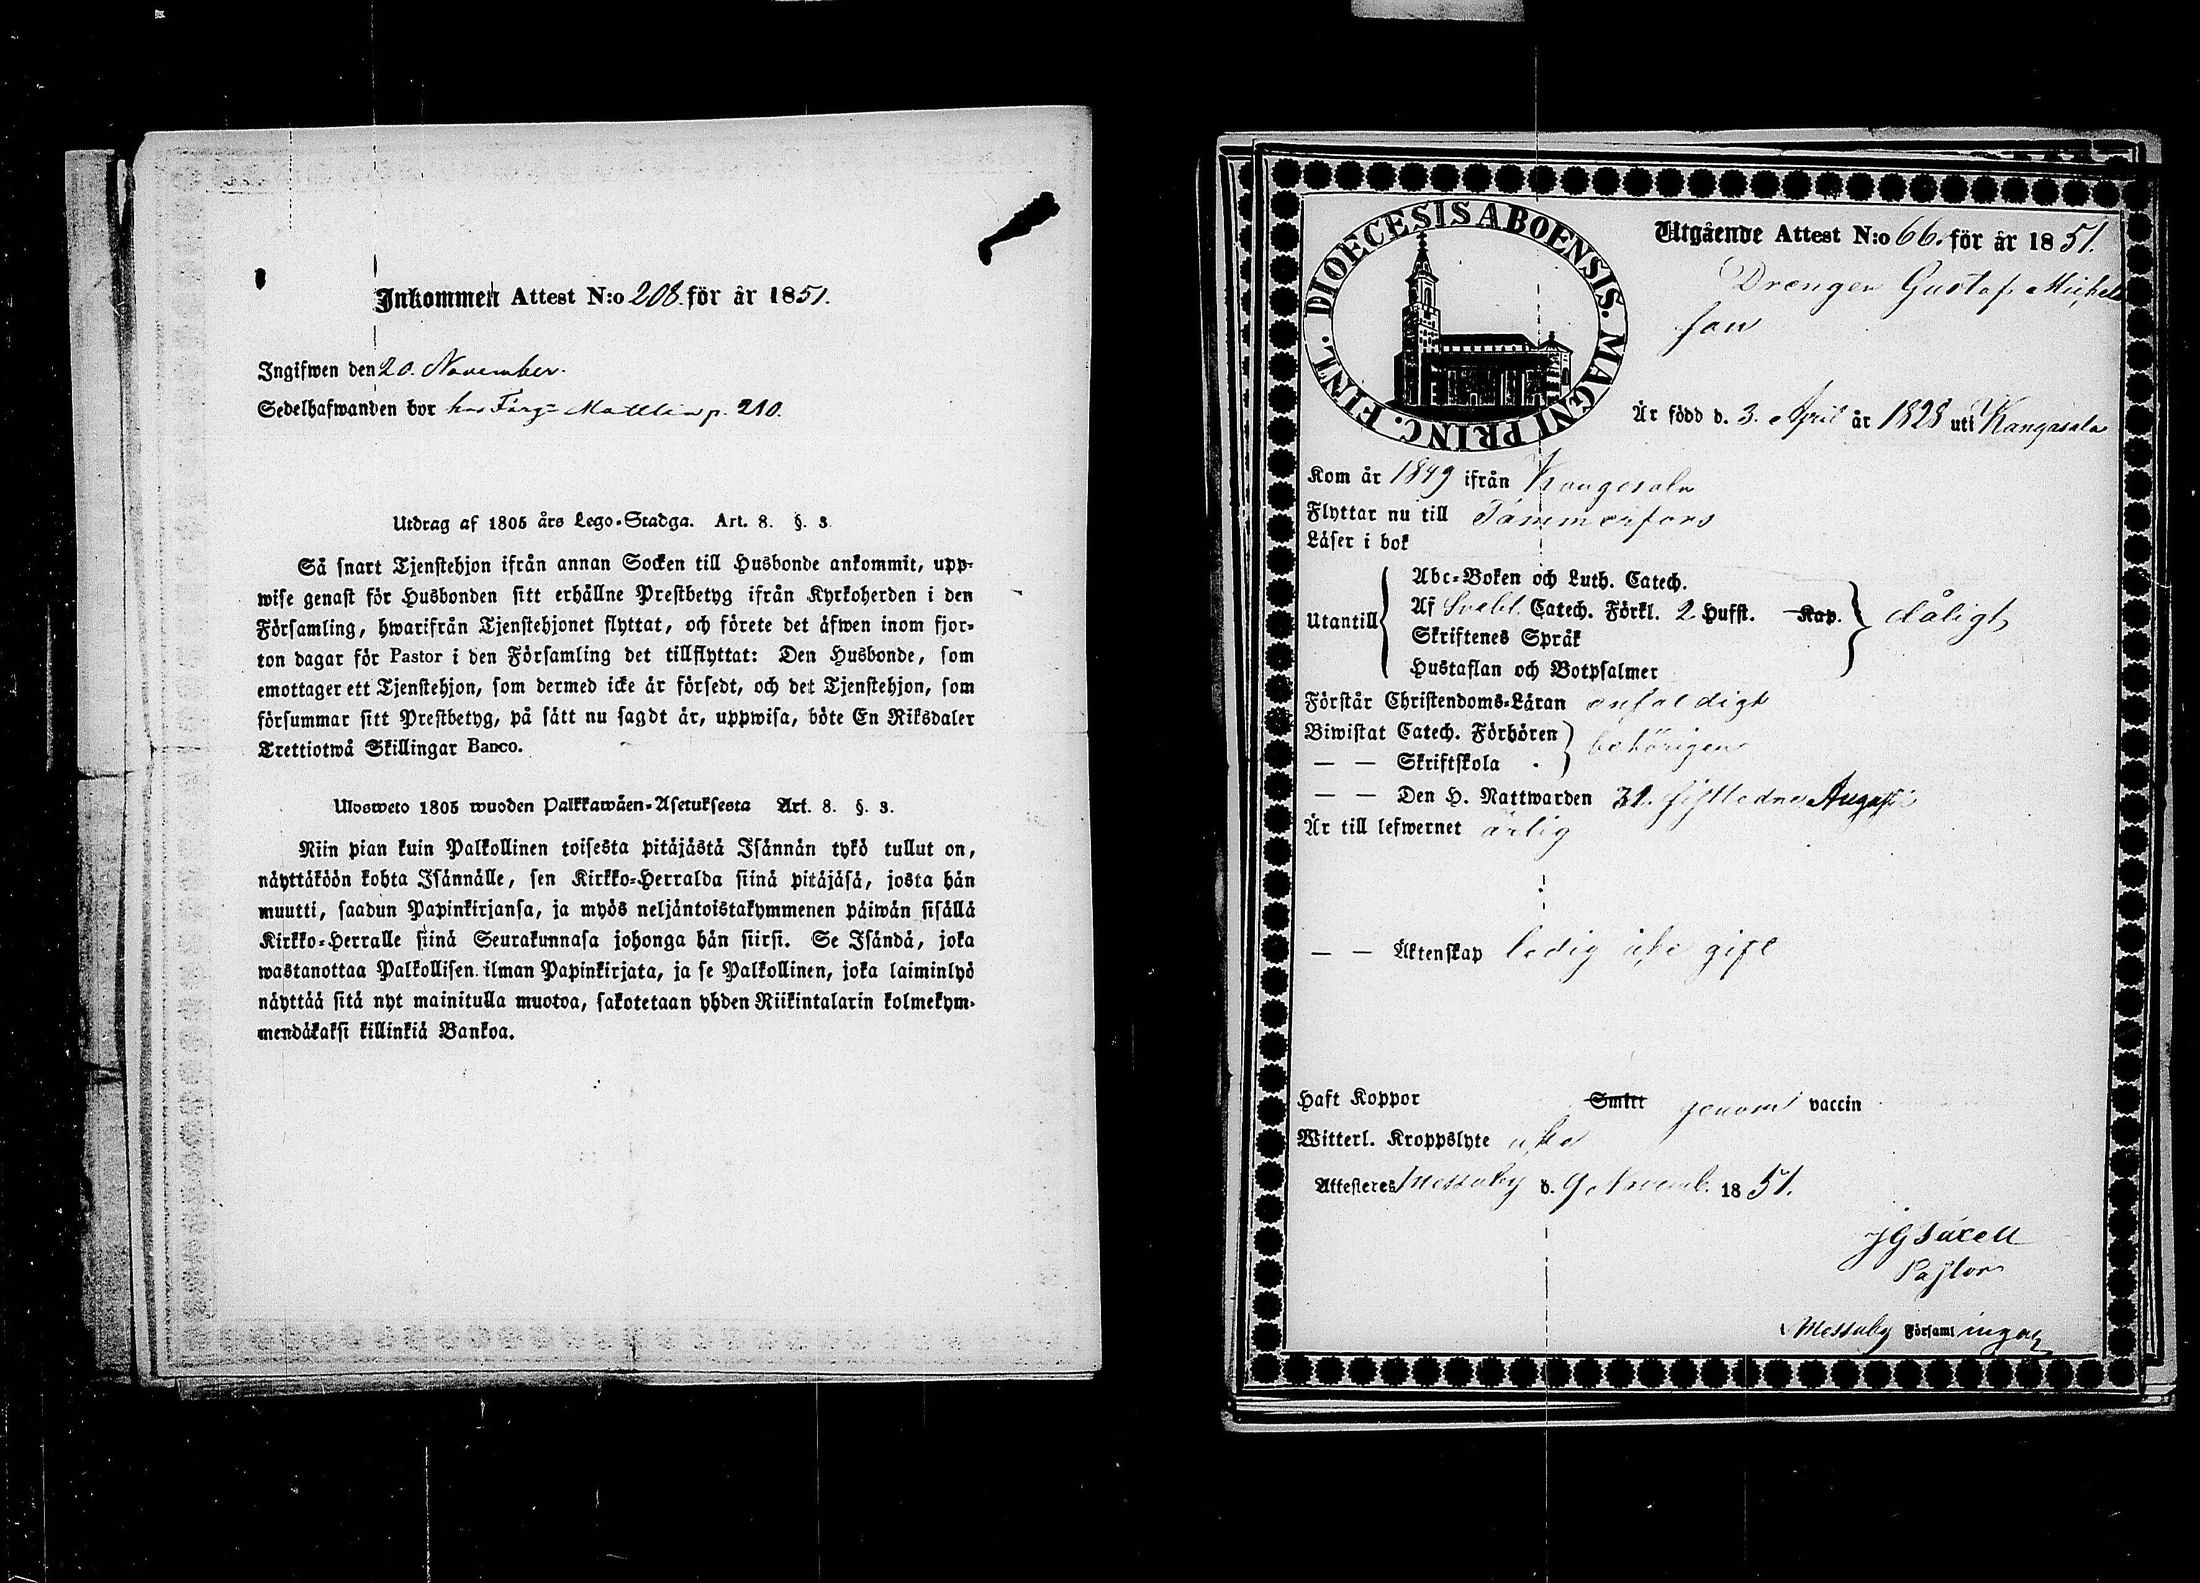 Inkommen Attest N:o 208. för år 1851.
Ingifwen den 20. November.
Sedelhafwanden bor hos Färg= Mattlin p. 210.
Utdrag af 1805 års Lego-Stadga. Art. 8. §. 3.
Så snart Tjenstehjon ifrån annan Socken till Husbonde ankommit, upp-
wise genast för Husbonden sitt erhållne Prestbetyg ifrån Kyrkoherden i den
Församling, hwarifrån Tjenstehjonet flyttat, och förete det äfwen inom fjor-
ton dagar för Pastor i den Församling det tillflyttat: Den Husbonde, som
emottager ett Tjenstehjon, som dermed icke är försedt, och det Tjenstehjon, som
försummar sitt Prestbetyg, på sätt nu sagdt är, uppwisa, böte En Riksdaler
Trettiotwå Skillingar Banco.
Ulosweto 1805 wuoden Palkkawäen-Asetuksesta Art. 8. §. 3.
Niin pian kuin Palkollinen toisesta pitäjästä Isännän tykö tullut on,
näyttäköön kohta Isännälle, sen Kirkko-Herralda siinä pitäjäsä, josta hän
muutti, saadun Papinkirjansa, ja myös neljäntoistakymmenen päiwän sisällä
Kirkko-Herralle siinä Seurakunnasa johonga hän siirsi. Se Isändä, joka
wastanottaa Palkollisen ilman Papinkirjata, ja se Palkollinen, joka laiminlyö
näyttää sitä nyt mainitulla muotoa, sakotetaan yhden Riikintalarin kolmekym-
mendäkaksi killinkiä Bankoa.
DIOECESIS ABOENSIS. MAGNI PRINC. FINL.
Utgående Attest N:o 66. för år 1851.
Drengen Gustaf Michels
son
Är född d. 3. April år 1828 uti Kangasala
Kom år 1849 ifrån Kangasala
Flyttar nu till Tammerfors
Läser i bok
Utantill
Abc-Boken och Luth. Catech.
Af Svebil. Catech. Förkl. 2 Hufst. Kap.
Skriftenes Språk
Hustaflan och Botpsalmer
dåligt
Förstår Christendoms-Läran enfaldigt
Biwistat Catech. Förhören
— — Skriftskola
behörigen
— — Den H. Nattwarden 31. sistledne Augusti
Är till lefwernet ärlig
— — Äktenskap ledig icke gift
Haft Koppor Smitt genom vaccin
Witterl. Kroppslyte icke
Attesteres Messuby d. 9 Novemb. 1851.
JGSaxell
Pastor
Messuby Församlingar